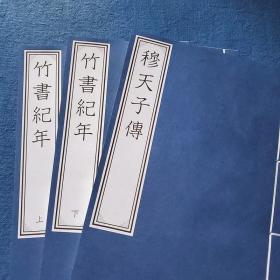 穆天子傳
竹書紀年
下
竹書紀年
上